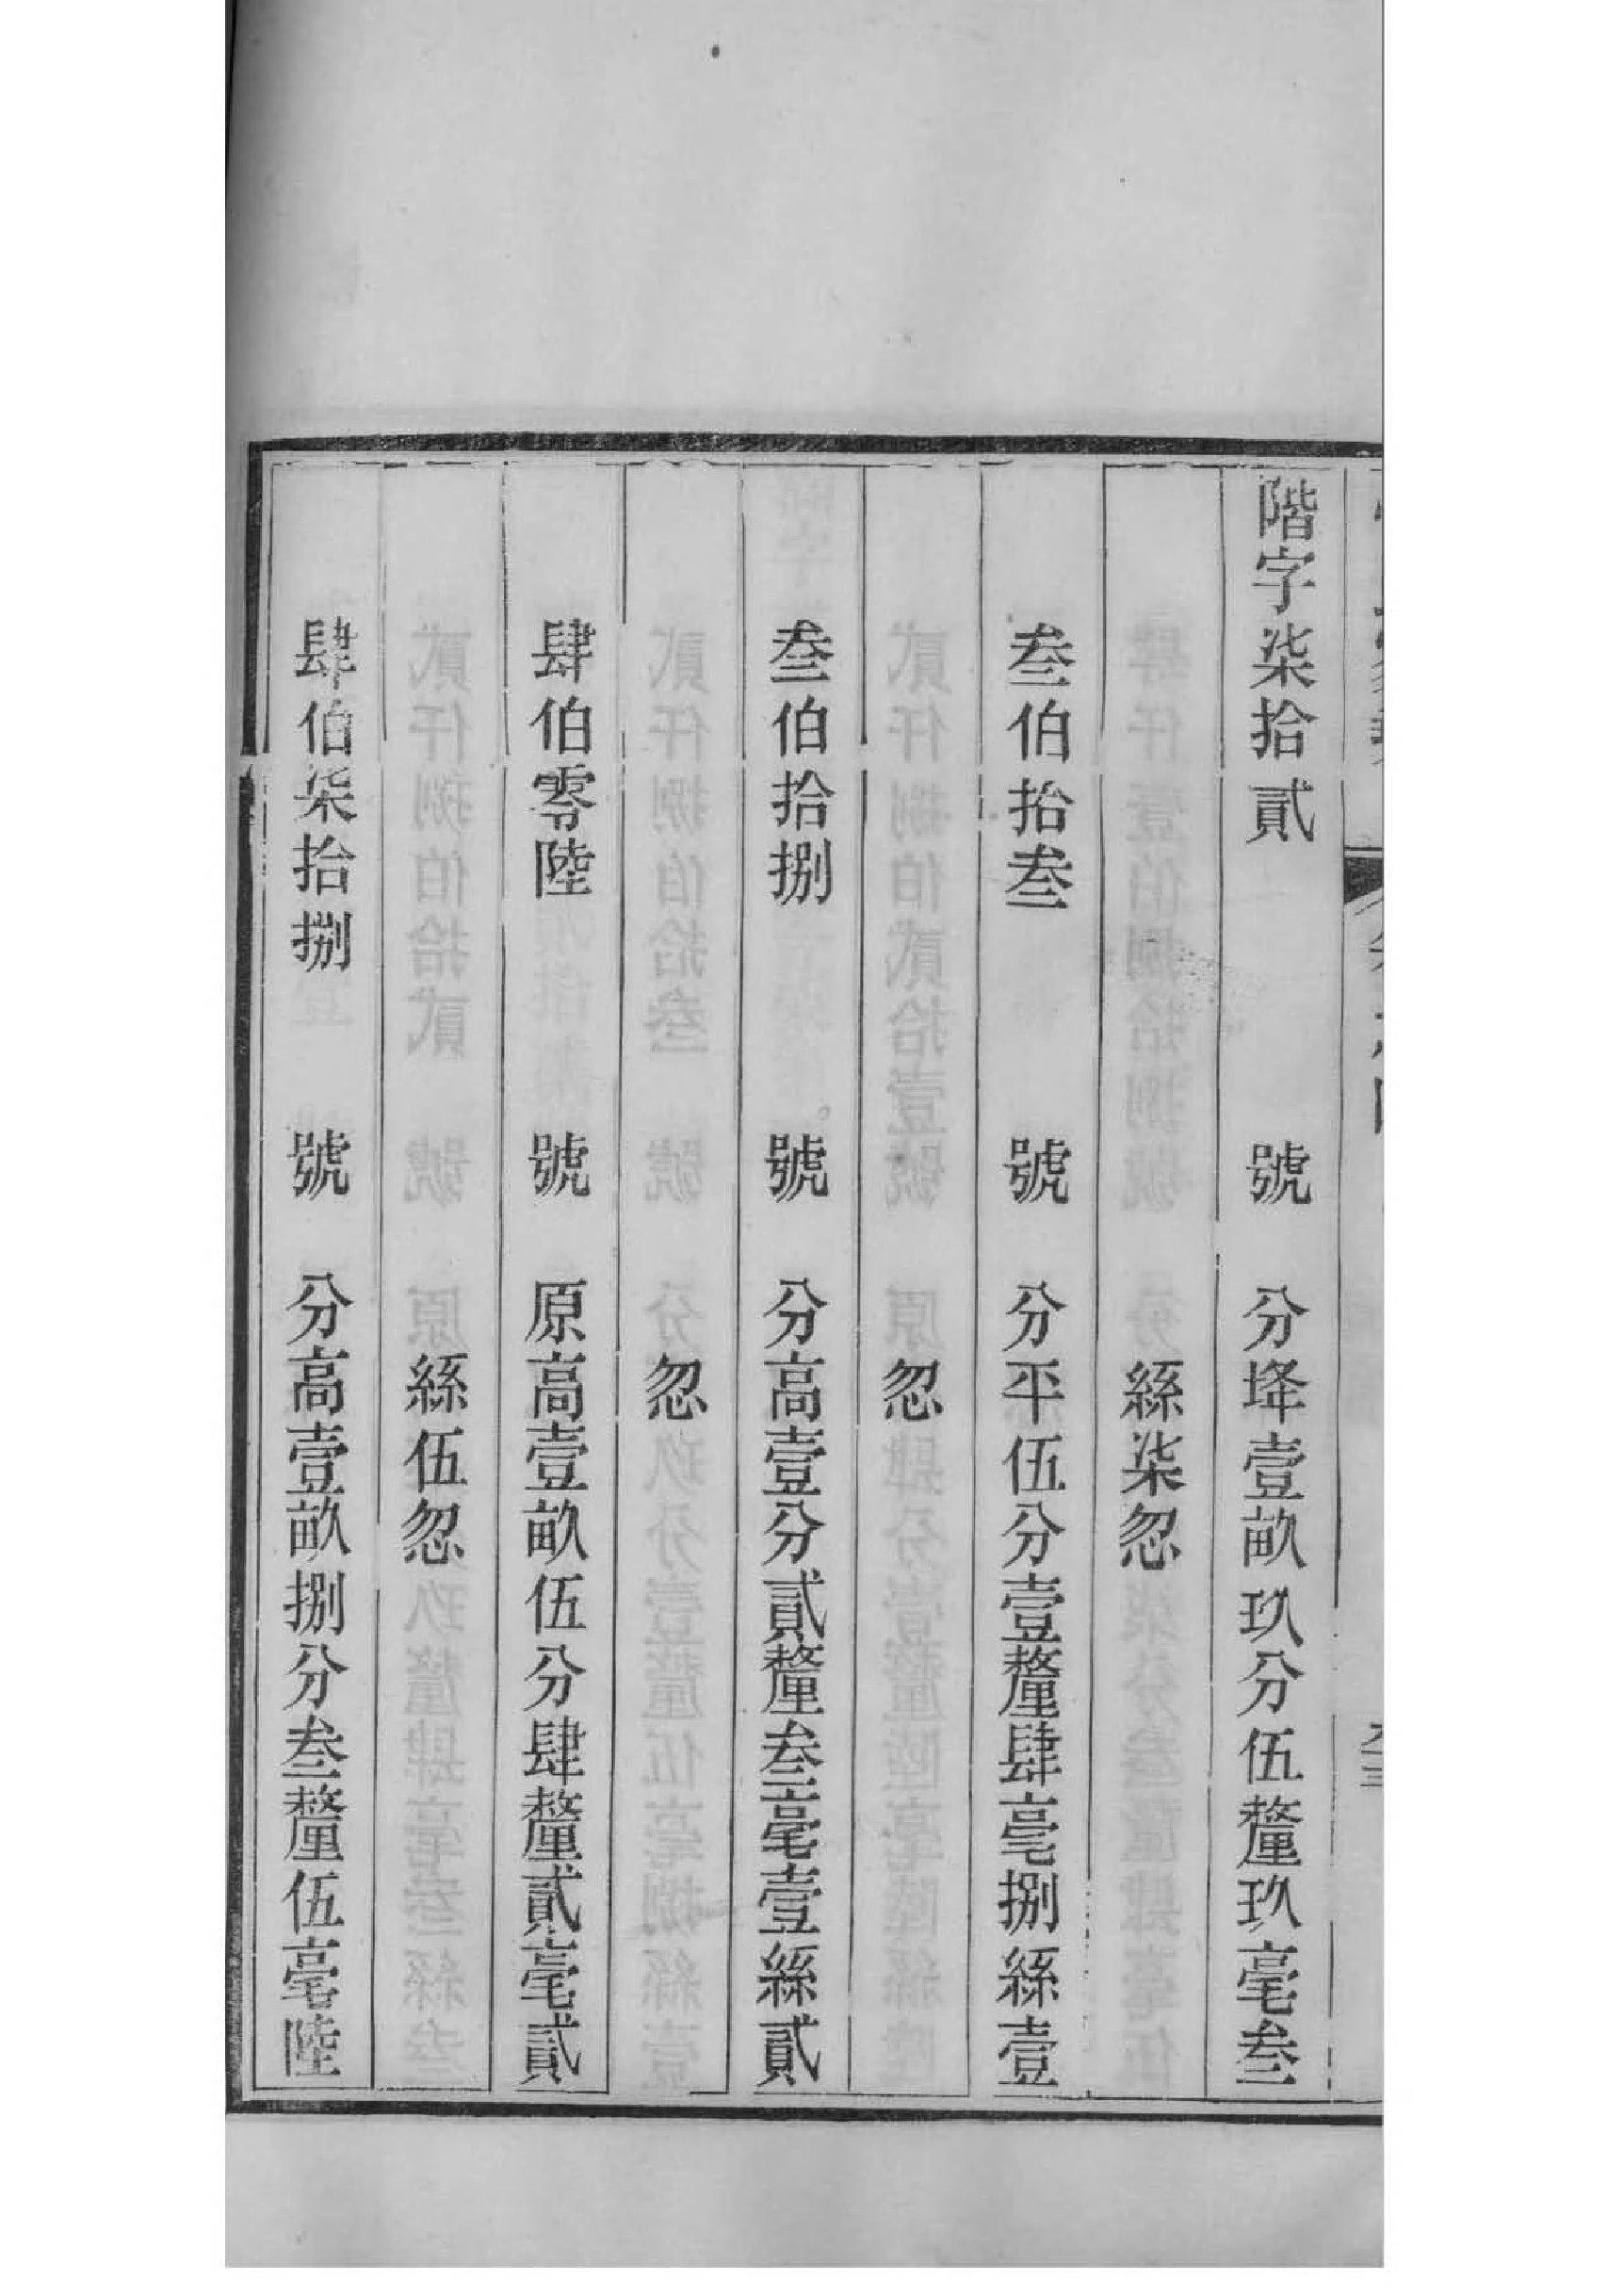 階字柒拾貳 號 分垾壹畝玖分伍釐玖毫叁
絲柒忽
叁伯拾叁 號 分平伍分壹釐肆毫捌絲壹
忽
叁伯拾捌 號 分高壹分貳釐叁毫壹絲貳
忽
肆伯零陸 號 原高壹畝伍分肆釐貳毫貳
絲伍忽
肆伯柒拾捌 號 分高壹畝捌分叁釐伍毫陸